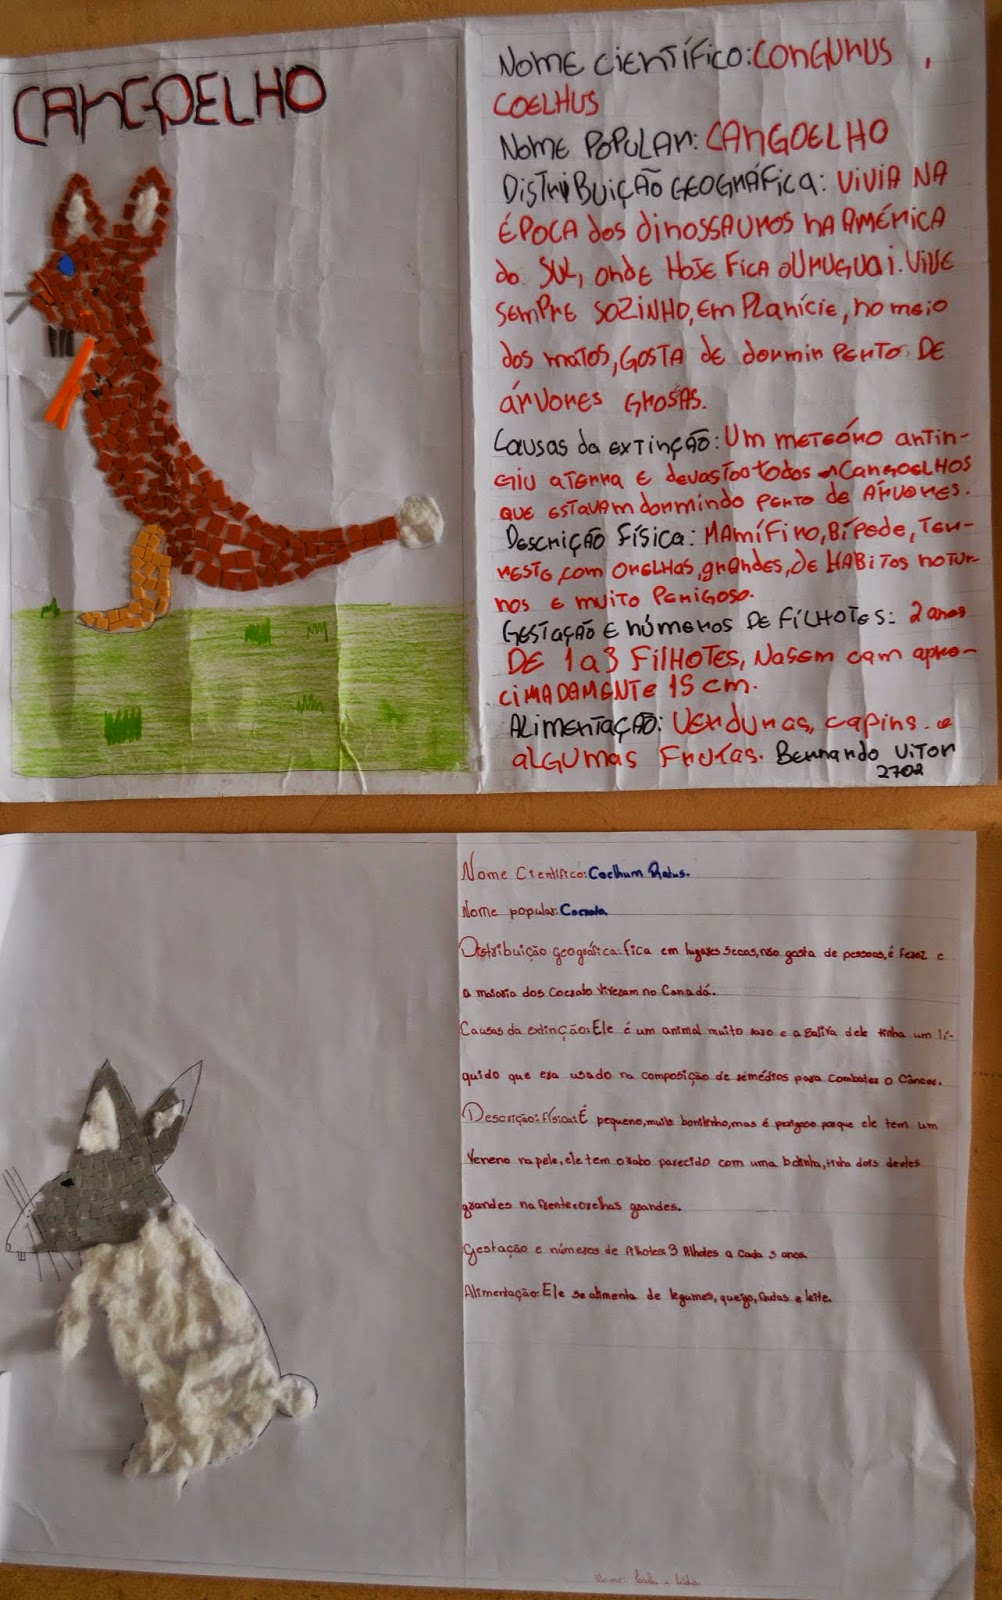 CANGOELHO
NOME CIENTÍFICO: CONGURUS,
COELHUS
NOME POPULAR: CANGOELHO
DISTRIBUIÇÃO GEOGRÁFICA: VIVIA NA
ÉPOCA dos dinossauros na AMÉRICA
do SUL, onde HOJE FICA O URUGUAI. VIVE
SEMPRE SOZINHO, Em PLANÍCIE, no meio
dos matos, GOSTA de dormir PERTO DE
ÁRVORES GROSAS.
Causas da EXTINÇÃO: Um METEÓRO ANTIN-
GIU ATERRA E devastou todos os CANGOELHOS
QUE ESTAVAM dormindo PERTO de ÁRVORES.
DESCRIÇÃO FÍSICA: MAMÍFIRO, BÍPEDE, TER-
RESTE, com ORELHAS, grandes, de HABITOS NOTUR-
nos E muito PERIGOSO.
GESTAÇÃO E NÚMEROS DE FÍLHOTES: 2 anos
DE 1 a 3 FILHOTES, NASEM com APRO-
CIMADAMENTE 15 cm.
ALIMENTAÇÃO: VERDURAS, capins e
ALGUMAS FRUTAS. BERNARDO VITOR
2702
Nome Científico: Coelhum Ratus.
Nome popular: Coerato
Distribuição geográfica: fica em lugares secos, não gosta de pessoas, é feroz e
a maioria dos Coerato viveram no Canadá.
Causas da extinção: Ele é um animal muito raro e a saliva dele tinha um lí-
quido que era usado na composição de remédios para combater o Câncer.
Descrição: física: É pequeno, muito bonitinho, mas é perigoso porque ele tem um
veneno na pele, ele tem o rabo parecido com uma bolinha, tinha dois dentes
grandes na frente e orelhas grandes.
Gestação e números de filhotes: 3 filhotes a cada 3 anos
Alimentação: Ele se alimenta de legumes, queijo, frutas e leite.
Nome: